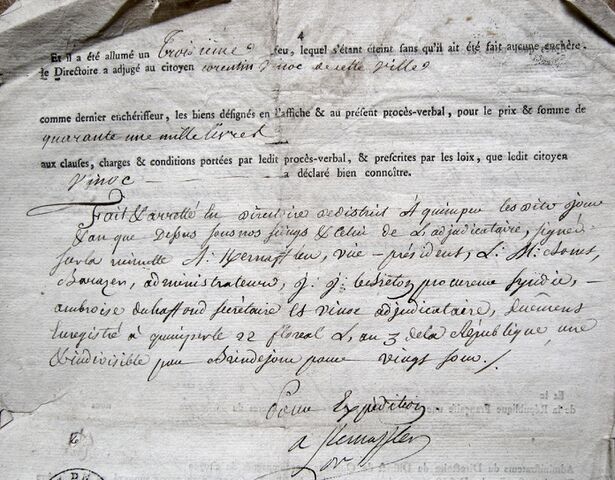 4
Et il a été allumé un Troisieme feu, lequel s'étant éteint sans qu'il ait été fait aucune enchère,
le Directoire a adjugé au citoyen corentin Vinoc de cette Ville
comme dernier enchérisseur, les biens désignés en l'affiche & au présent procès-verbal, pour le prix & somme de
quarante une mille livres
aux clauses, charges & conditions portées par ledit procès-verbal, & prescrites par les loix, que ledit citoyen
Vinoc a déclaré bien connoître.
Fait & arretté en Directoire de district à quimper lesdits jour
& an que dessus sous nos seings & celui de L'adjudicataire, signé
sur la minutte A. Kernafflen, vice-président, L. M.
administrateurs, J. J. procureur syndic,
ambroise duhaffond secrétaire et vinoc adjudicataire,
Enregistré à quimper le 22 floreal L'an 3 de la République une
& indivisible pour vingt sous ./.
Pour Expédition
a Kernafflen